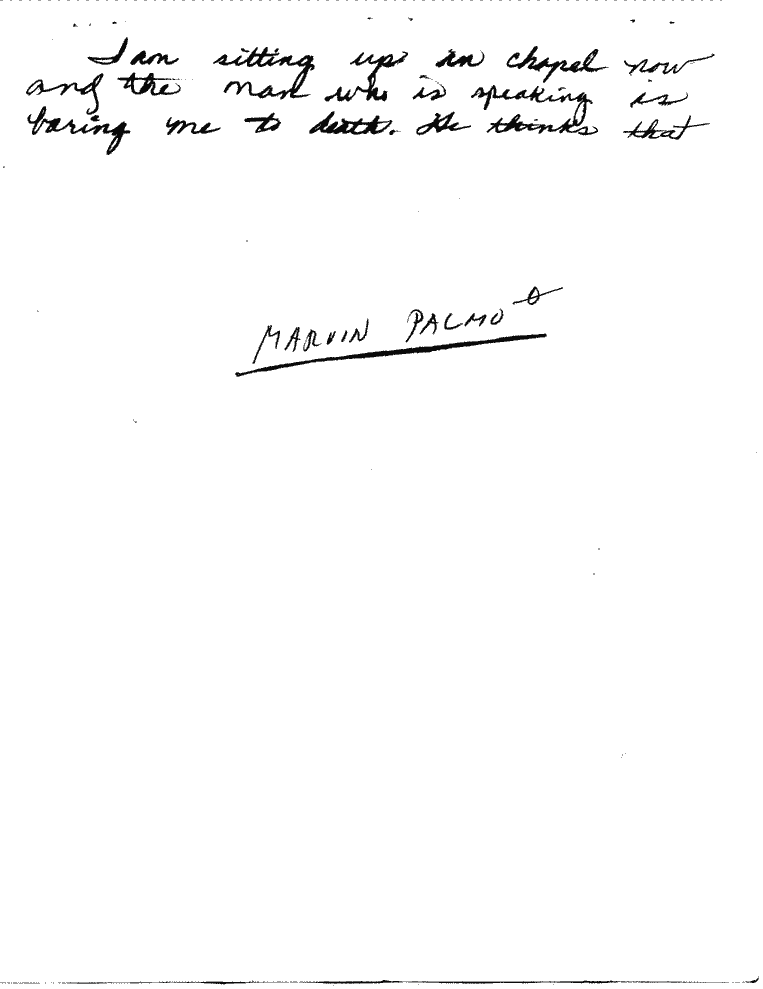 I am sitting up in chapel now
and the man who is speaking is
boring me to death. He thinks that
MARVIN PALMO